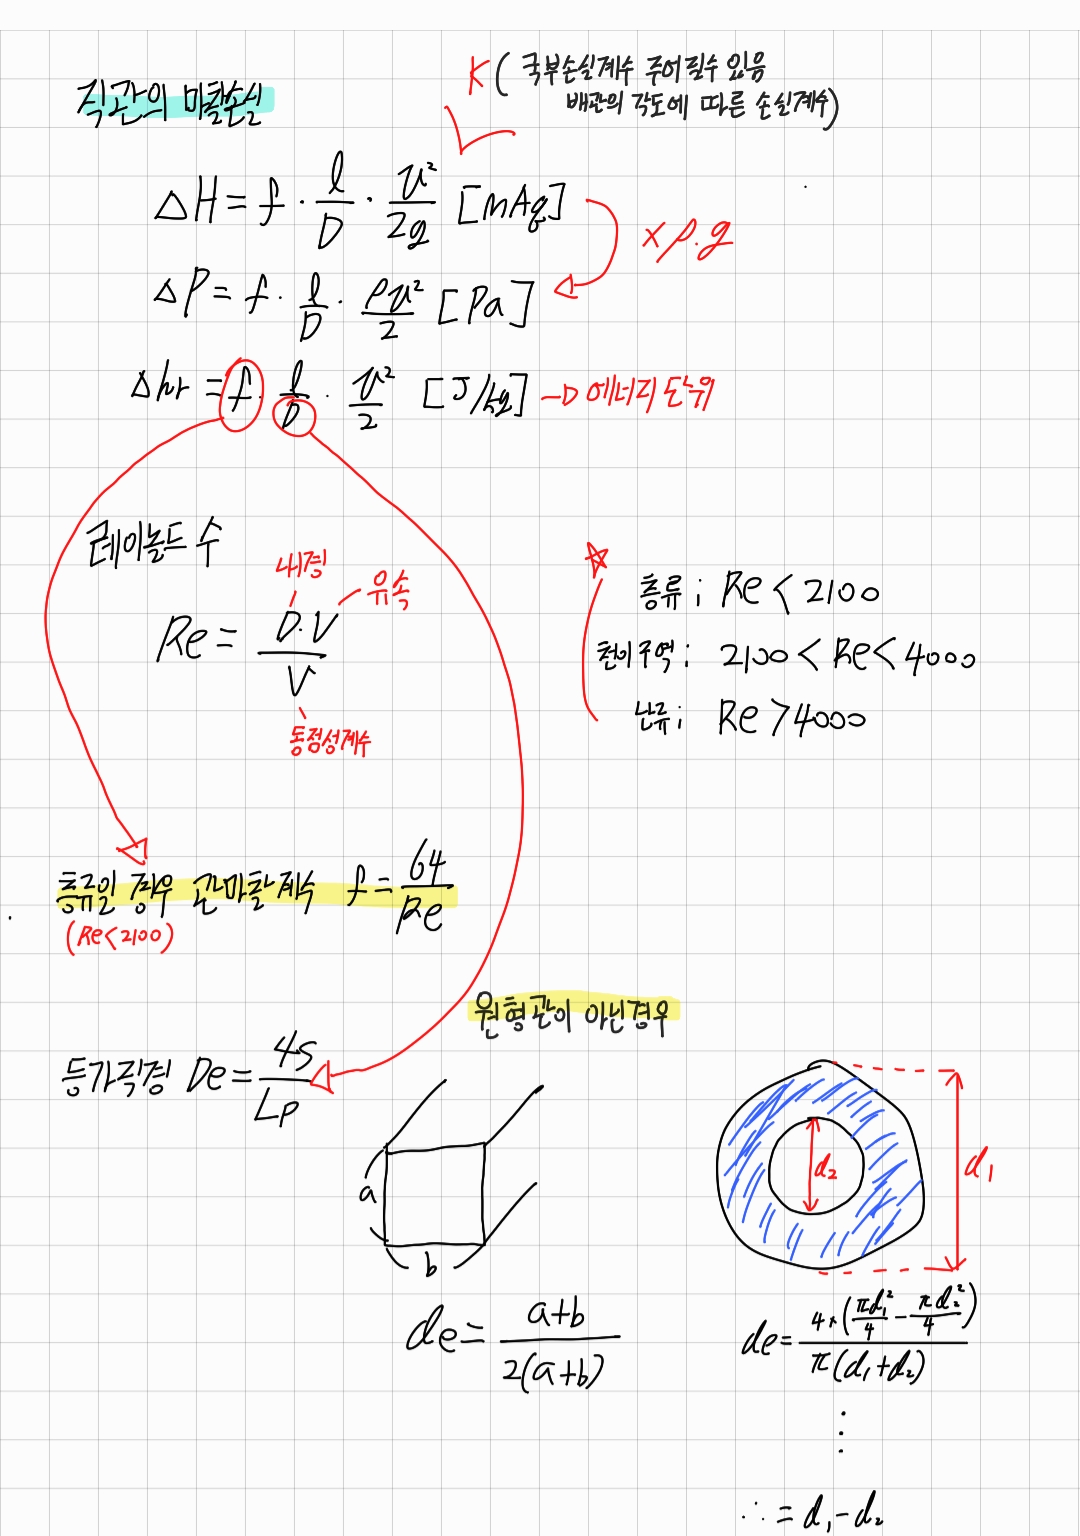 직관의 마찰손실
K ( 국부손실계수 주어질수 있음
배관의 각도에 따른 손실계수)
△H = f · l/D · v²/2g [mAq]
× ρ.g
△P = f · l/D · ρv²/2 [Pa]
△hr = f · l/D · v²/2 [J/kg] → 에너지 단위
레이놀드 수
내경
유속
Re = D·V/ν
동점성계수
☆
층류 ; Re < 2100
천이구역 ; 2100 < Re < 4000
난류 ; Re > 4000
층류일 경우 관마찰계수 f = 64/Re
(Re<2100)
원형관이 아닌경우
등가직경 De = 4S/Lp
a
b
d₂
d₁
de = a+b/2(a+b)
de = 4×(πd₁²/4 - πd₂²/4)/π(d₁+d₂)
⋮
∴ = d₁-d₂